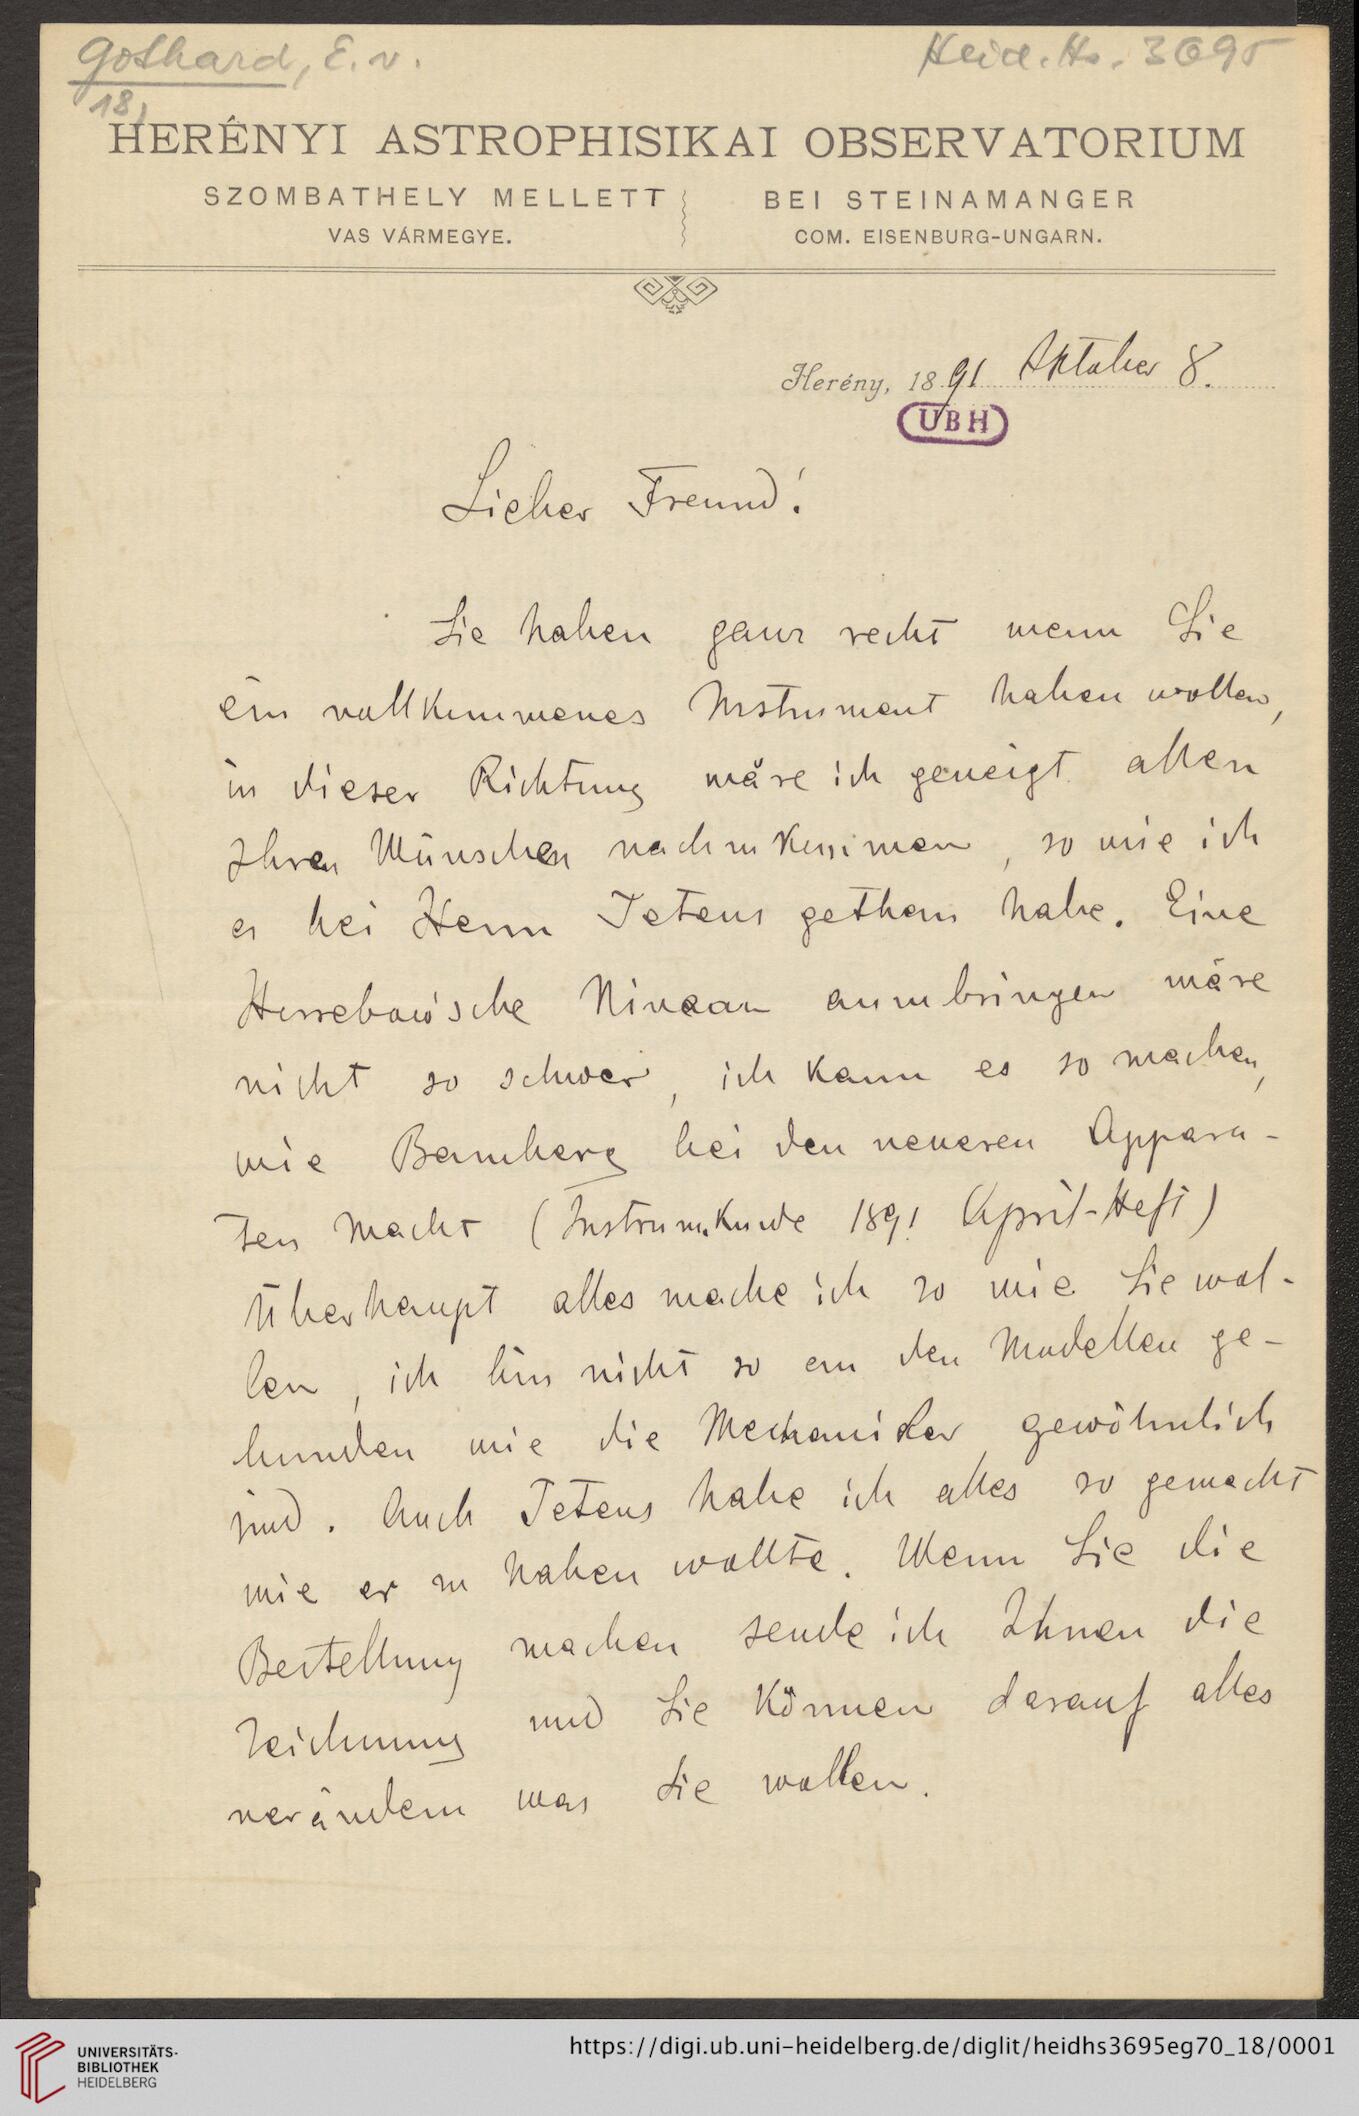 Gothard, E. v.
Heid. Hs. 3695
18)
HERÉNYI ASTROPHISIKAI OBSERVATORIUM
SZOMBATHELY MELLETT
VAS VÁRMEGYE.
BEI STEINAMANGER
COM. EISENBURG-UNGARN.
Herény, 1891 Oktober 8.
UBH
Lieber Freund!
Sie haben ganz recht wenn Sie
ein vollkommenes Instrument haben wollen,
in dieser Richtung wäre ich geneigt allen
Ihren Wünschen nachzukommen, so wie ich
es bei Herrn Tetens gethan habe. Eine
Horrebow'sche Niveau anzubringen wäre
nicht so schwer, ich kann es so machen,
wie Bamberg bei den neueren Appara-
ten macht (Instrum.kunde 1891 April-Heft)
Überhaupt alles mache ich so wie Sie wol-
len, ich bin nicht so an den Modellen ge-
bunden wie die Mechaniker gewöhnlich
sind. Auch Tetens habe ich alles so gemacht
wie er zu haben wollte. Wenn Sie die
Bestellung machen sende ich Ihnen die
Zeichnung und Sie können darauf alles
verändern was Sie wollen.
UNIVERSITÄTS-
BIBLIOTHEK
HEIDELBERG
https://digi.ub.uni-heidelberg.de/diglit/heidhs3695eg70_18/0001